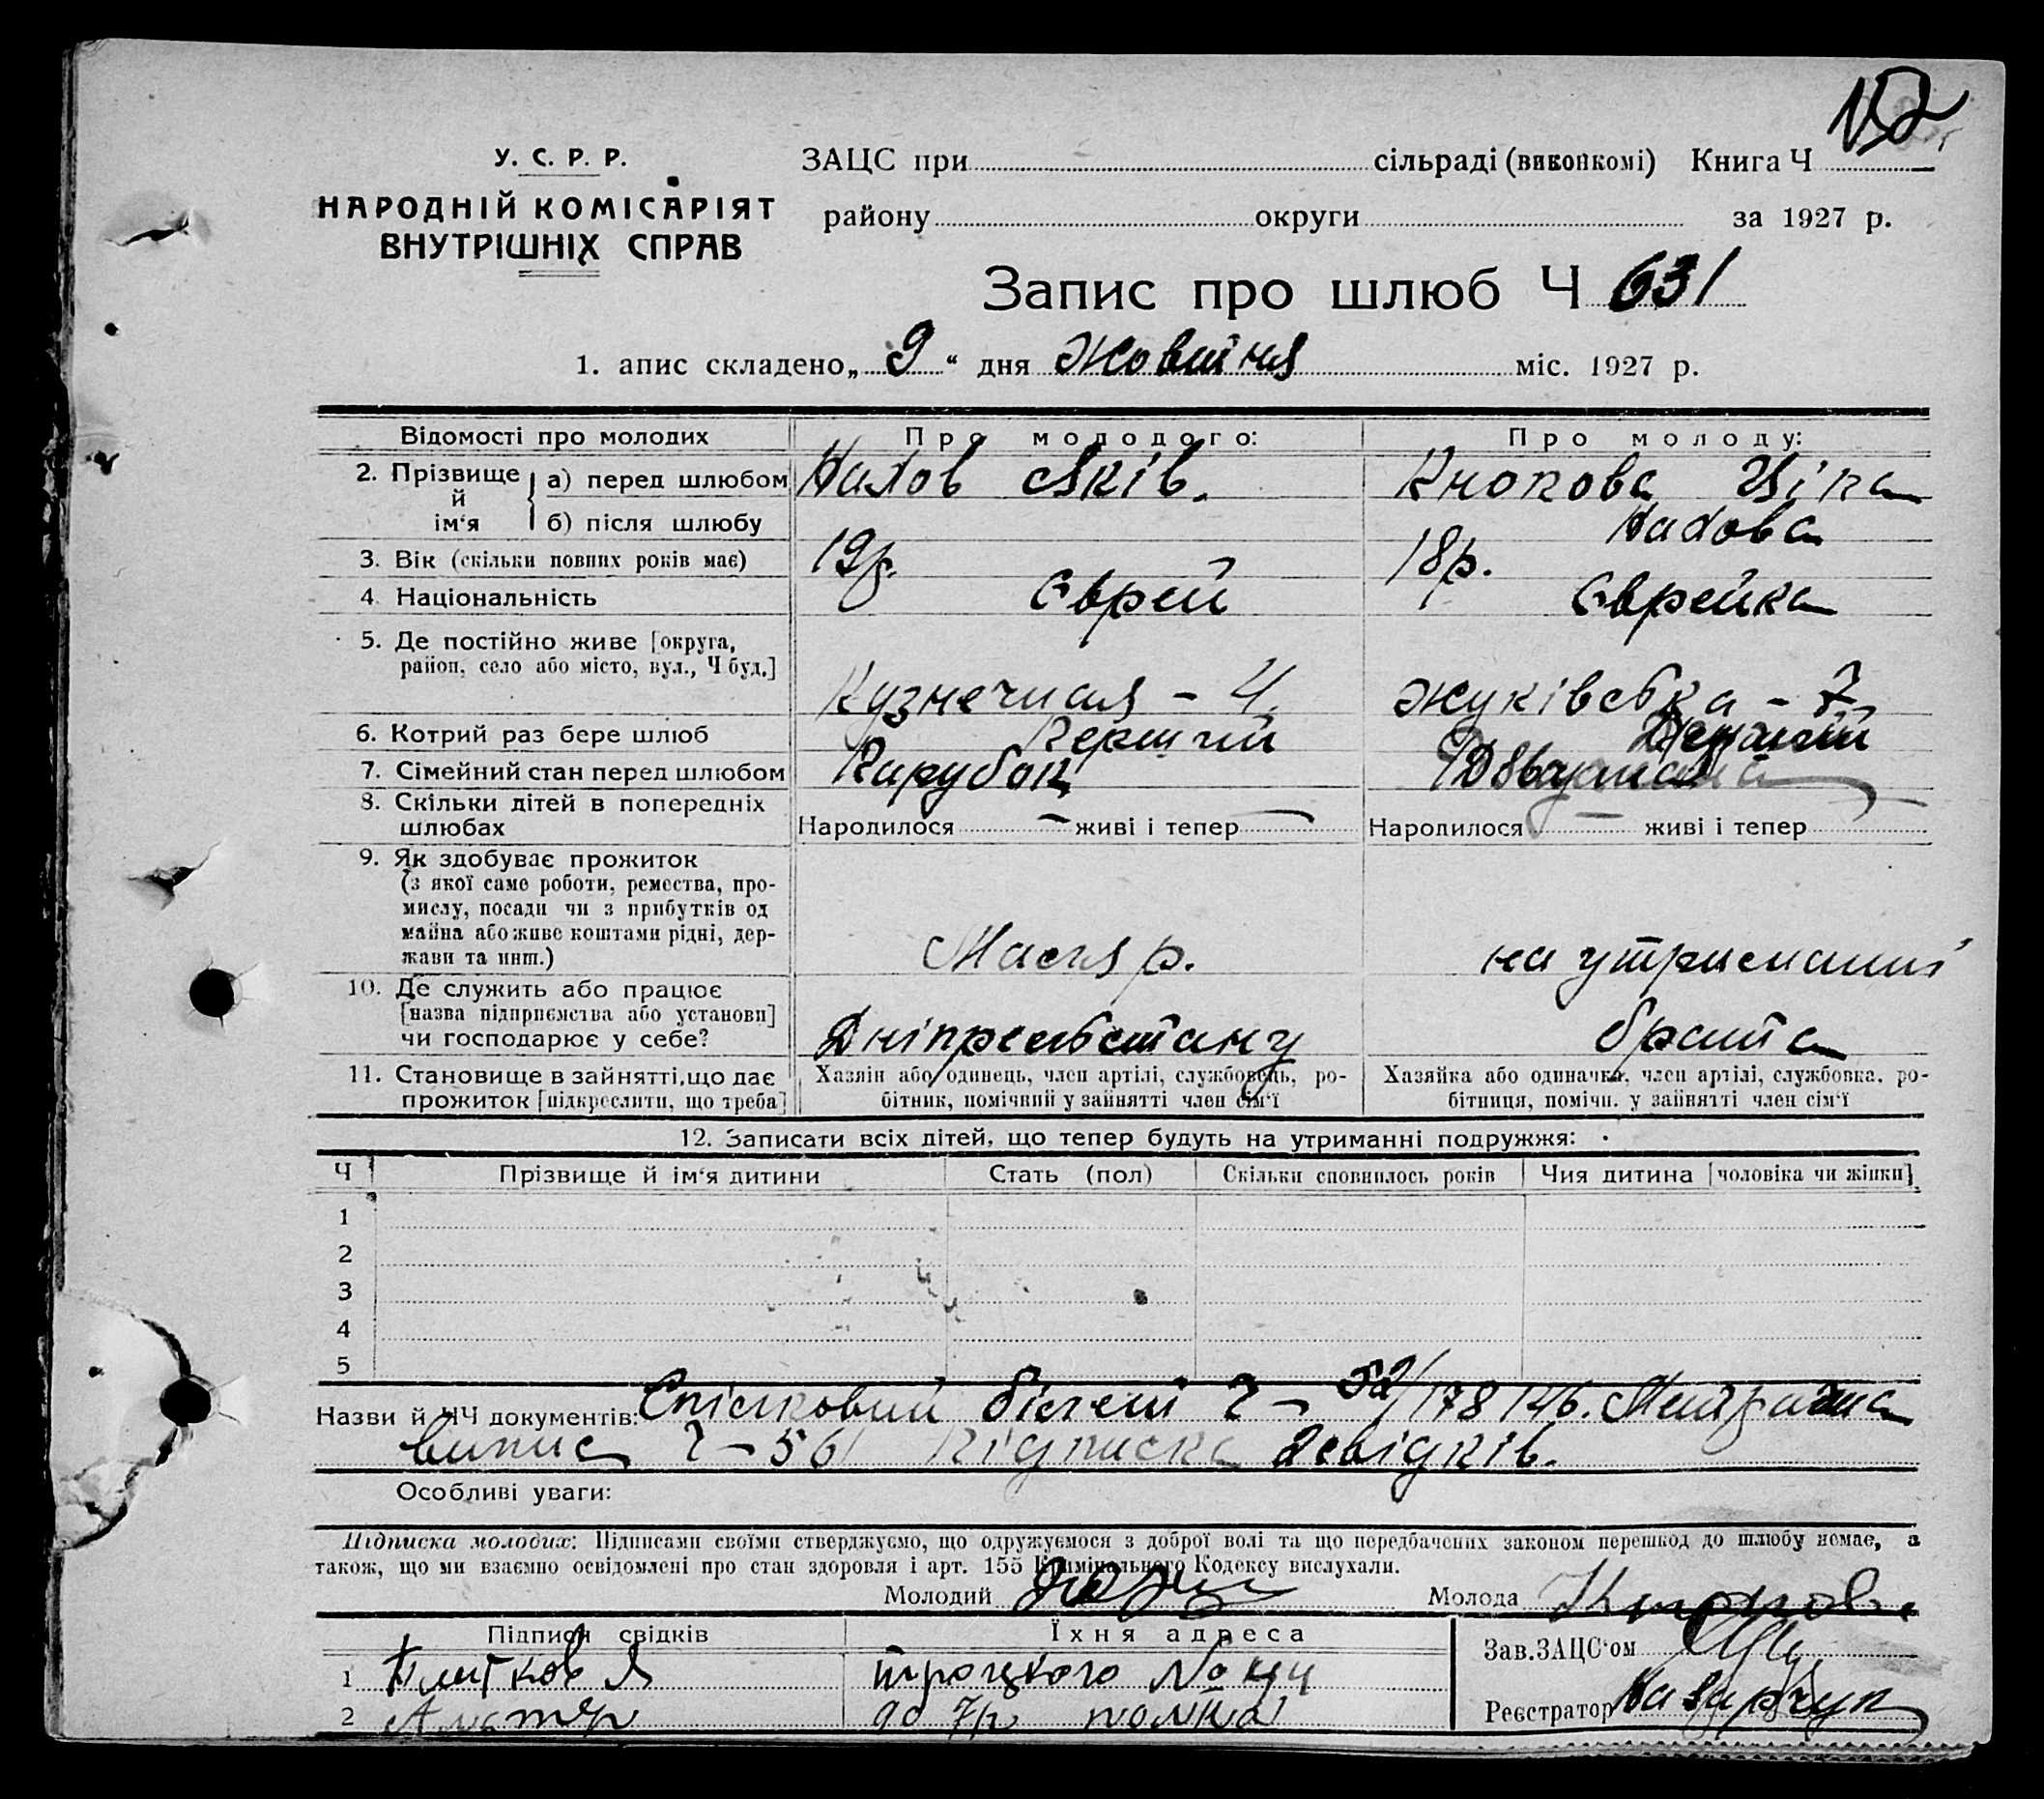 У. С. Р. Р.
НАРОДНІЙ КОМІСАРІЯТ
ВНУТРІШНІХ СПРАВ
ЗАЦС при сільраді (виконкомі) Книга Ч
району округи за 1927 р.
Запис про шлюб Ч 631
1. апис складено „ 9 “ дня Жовтня міс. 1927 р.
Відомості про молодих Про молодого: Про молоду:
2. Прізвище й ім‘я а) перед шлюбом Яків. Кнопова Ціпа
б) після шлюбу
3. Вік (скільки повних років має) 19р. 18р.
4. Національність Єврей Єврейка
5. Де постійно живе [округа,
район, село або місто, вул., Ч буд.] Кузнечная - 4. Жуківська - 7
6. Котрий раз бере шлюб Перший Перший
7. Сімейний стан перед шлюбом Парубок
8. Скільки дітей в попередніх
шлюбах Народилося — живі і тепер — Народилося — живі і тепер
9. Як здобуває прожиток
(з якої саме роботи, ремества, про-
мислу, посади чи з прибутків од
майна або живе коштами рідні, дер-
жави та инш.) Маляр. на утриманні
10. Де служить або працює
[назва підприємства або установи]
чи господарює у себе? брата
11. Становище в зайнятті, що дає
прожиток [підкреслити, що треба]
Хазяін або одинець, член артілі, службовець, ро-
бітник, помічний у зайнятті член сім‘ї
Хазяйка або одиначка, член артілі, службовка, ро-
бітниця, помічн. у зайнятті член сім‘ї
12. Записати всіх дітей, що тепер будуть на утриманні подружжя:
Ч Прізвище й ім‘я дитини Стать (пол) Скільки сповнилось років Чия дитина [чоловіка чи жінки]
1
2
3
4
5
Назви й ЧЧ документів: Спілковий білет Ч - 52/178146. Метрична
випис Ч - 56 Підписка свідків.
Особливі уваги:
Підписка молодих: Підписами своїми стверджуємо, що одружуємося з доброї волі та що передбачених законом перешкод до шлюбу немає, а
також, що ми взаємно освідомлені про стан здоровля і арт. 155 Кримінального Кодексу вислухали.
Молодий Молода Кнопова
Підписи свідків Їхня адреса Зав. ЗАЦС‘ом
1 Я троцкого № 44
2 Реєстратор